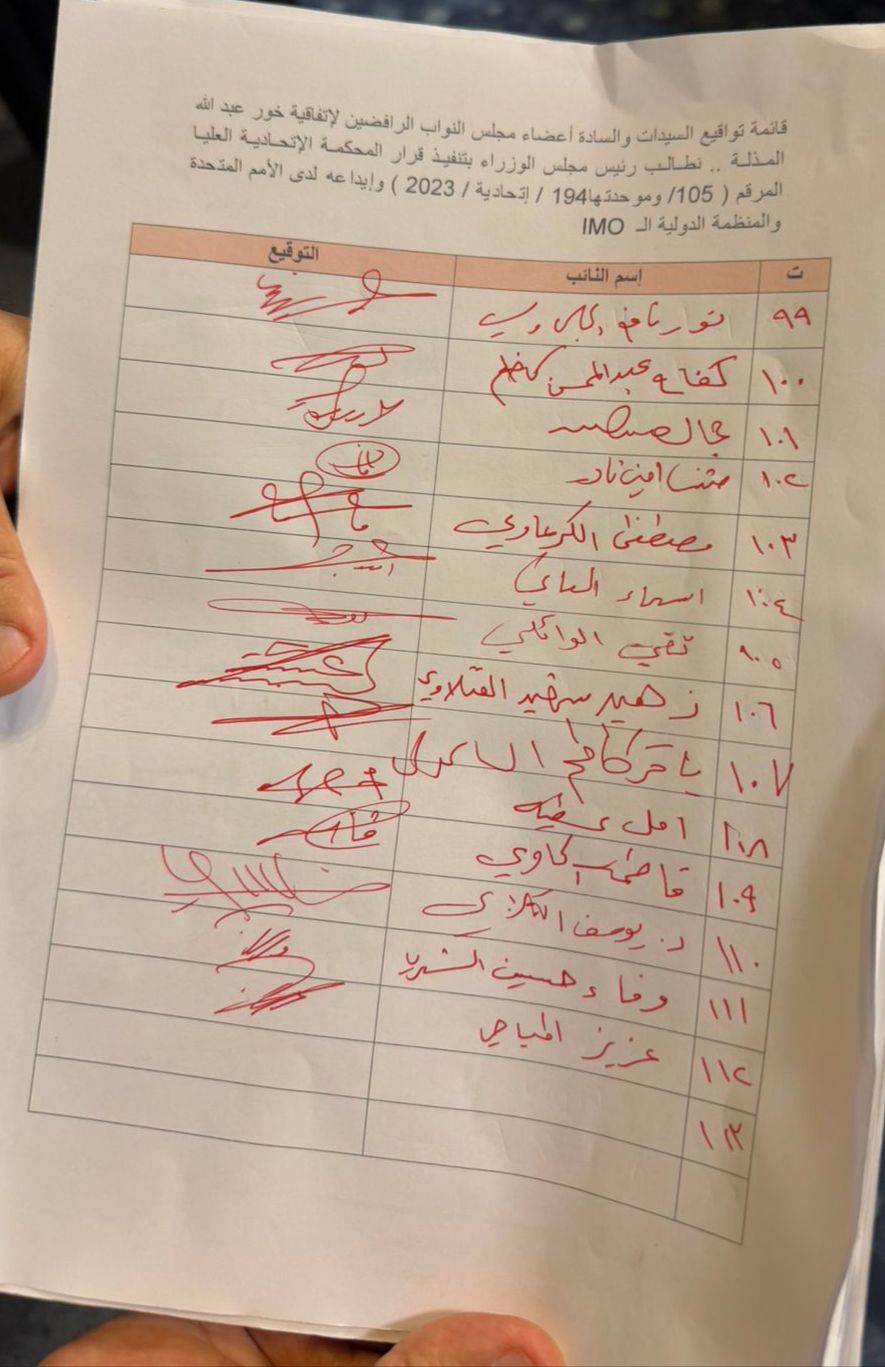 قائمة تواقيع السيدات والسادة أعضاء مجلس النواب الرافضين لإتفاقية خور عبد الله
المذلة .. نطالب رئيس مجلس الوزراء بتنفيذ قرار المحكمة الإتحادية العليا
المرقم ( 105/ وموحدتها194 / إتحادية / 2023 ) وإيداعه لدى الأمم المتحدة
والمنظمة الدولية الـ IMO
ت إسم النائب التوقيع
٩٩ نور نافع
١٠٠ كفاح عبد المحسن كاظم
١٠١
١٠٢ مثنى امين نادر
١٠٣ مصطفى الكرعاوي
١٠٤ اسماء
١٠٥ تقي الوائلي
١٠٦ زهير شهيد الفتلاوي
١٠٧ باقر كاظم الساعدي
١٠٨ امل عطية
١٠٩
١١٠ د. يوسف الكلابي
١١١ وفاء حسين
١١٢ عزيز المياحي
١١٣